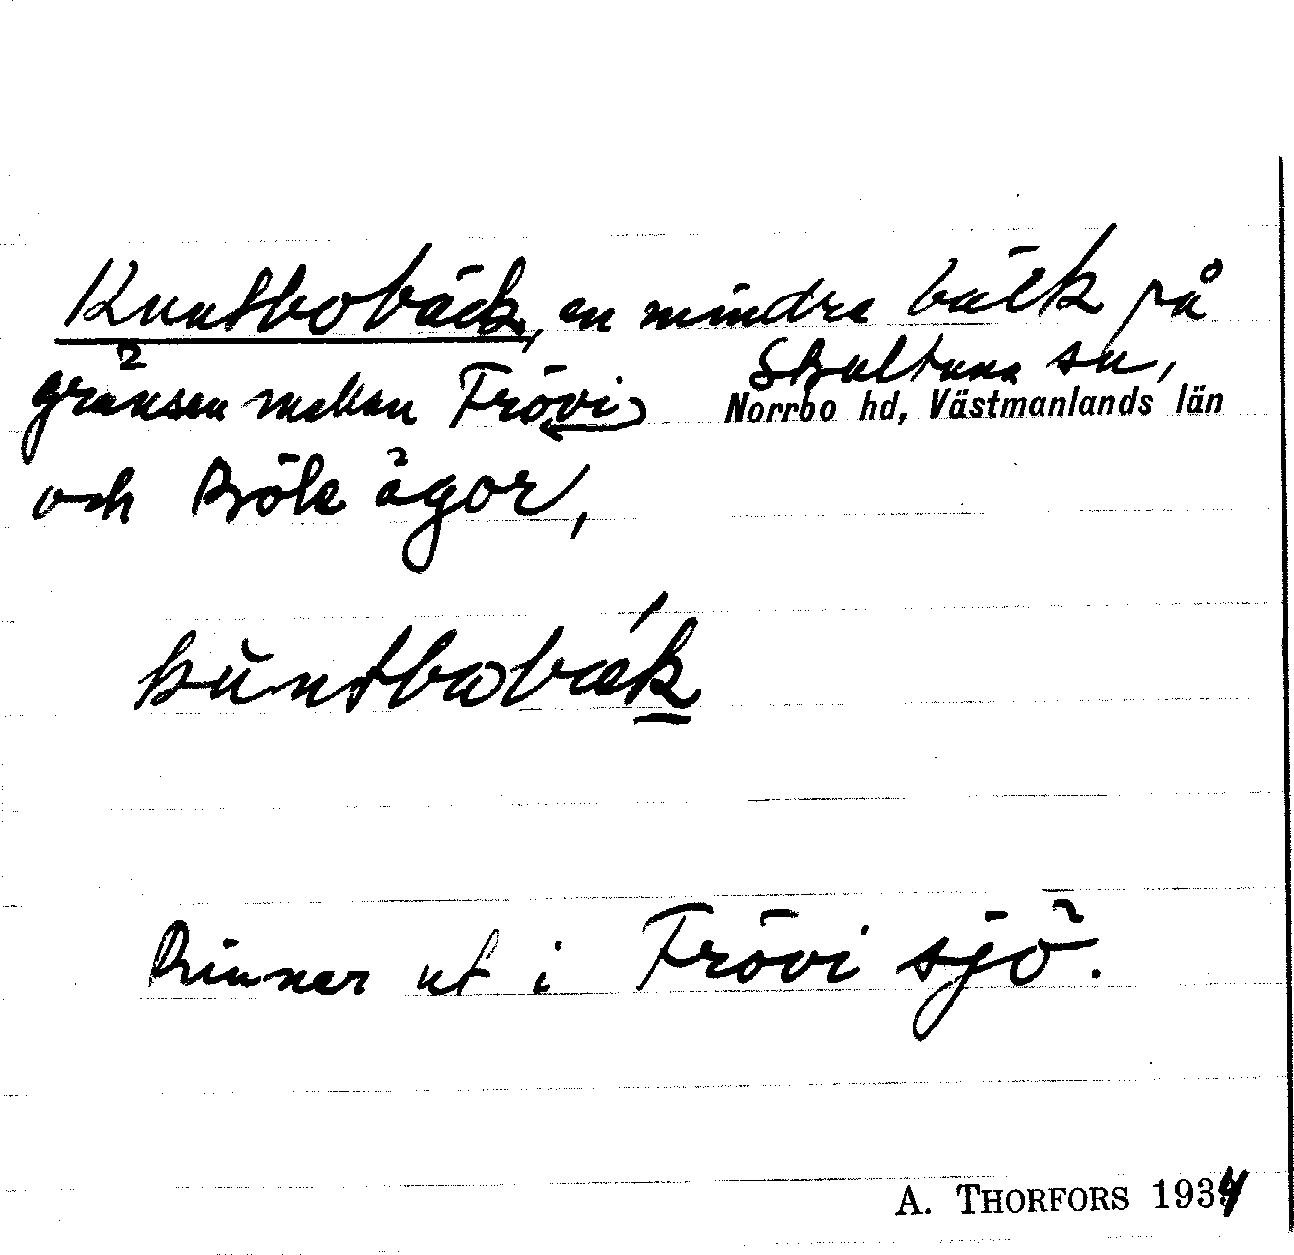 Kuntbobäck, en mindre bäck på
Skultuna sn,
Norrbo hd, Västmanlands län
gränsen mellan Frövi
och Böle ägor,
kuntbobäk
Rinner ut i Frövi sjö.
A. THORFORS 1934